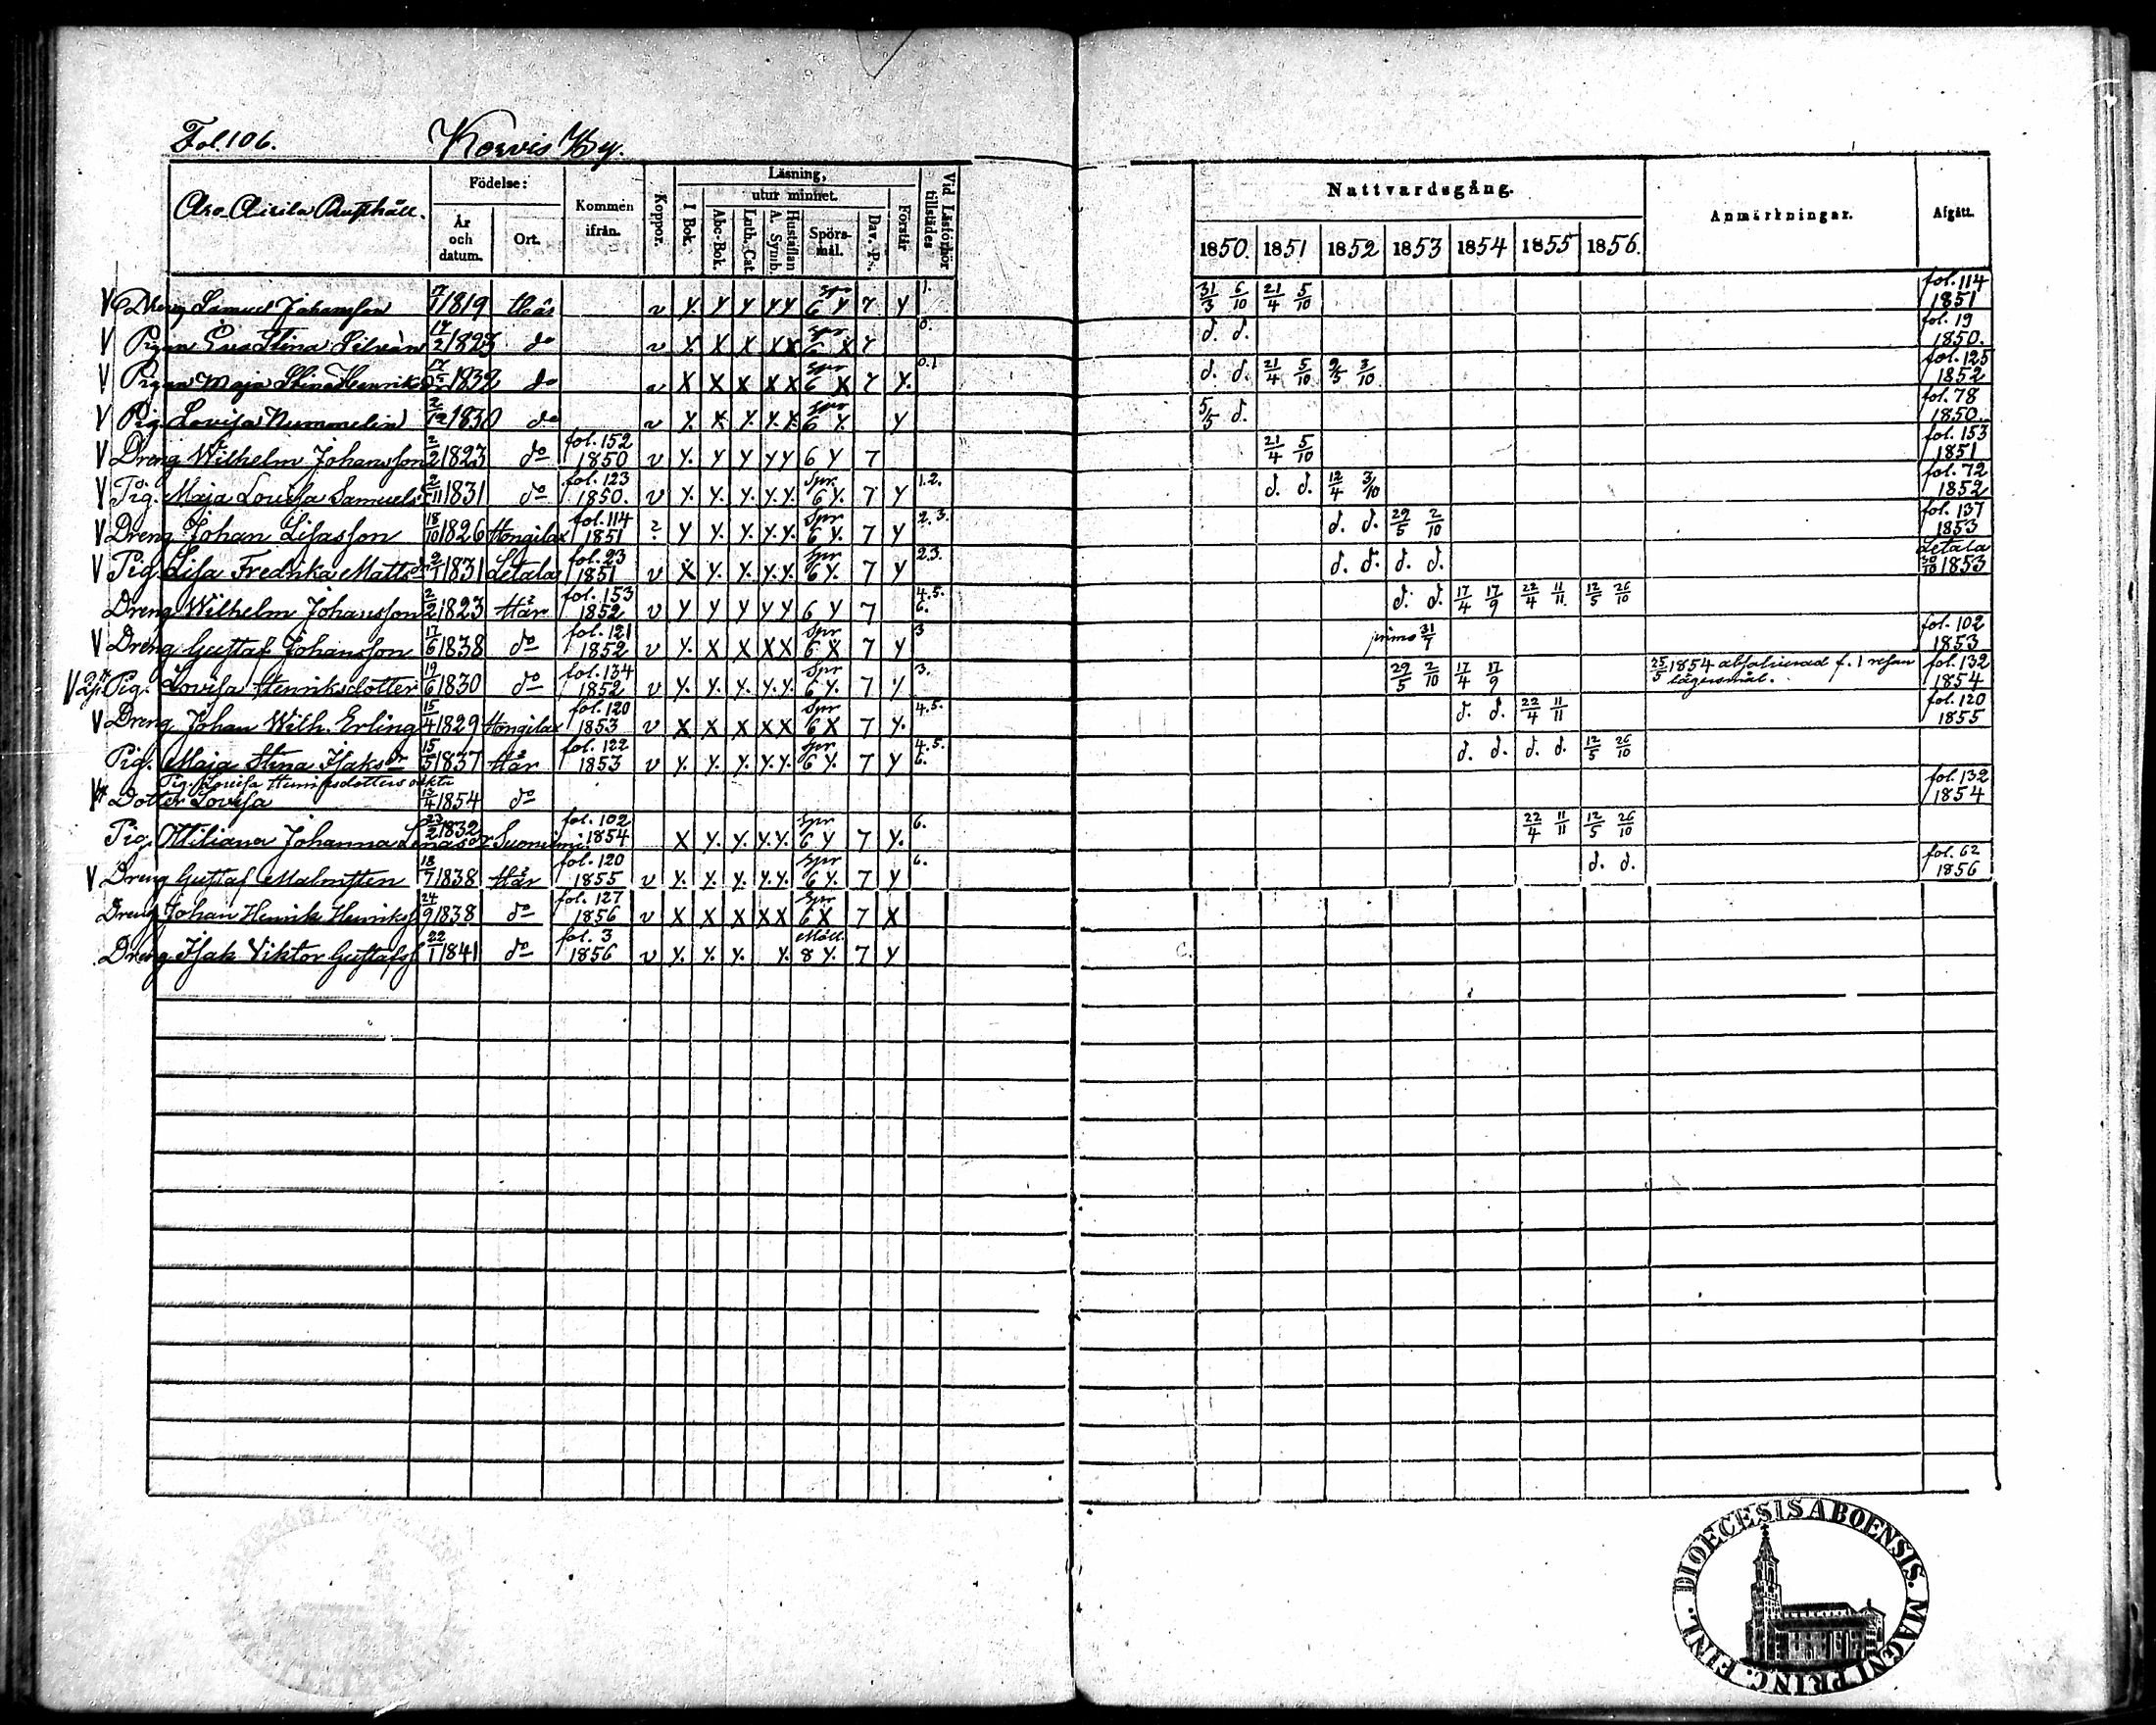 Fol. 106. Korvis By.
Födelse: Läsning, Nattvardsgång.
utur minnet.
Aro Äirilä Rusthåll. År och datum. Ort. Kommen ifrån. Koppor. I Bok. Abc-Bok. Luth. Cat. Hustaflan A. Symb. Spörsmål. Dav. Ps. Förstår Vid Läsförhör tillstädes 1850. 1851 1852 1853 1854 1855 1856. Anmärkningar. Afgått.
V Dreng Samuel Johansson 17/1 1819 Här v y. y y y y spr 6 y 7 y 1. 31/3 6/10 21/4 5/10 fol. 114 1851
V Pigan Eva Stina 14/2 1823 do v X X X X X spr 6 X 7 0. d. d. fol. 19 1850.
V Pigan Maja Stina Henriks 1832 do v X X X X X spr 6 X 7 y. 0.1 d. d. 21/4 5/10 9/5 3/10 fol. 125 1852
V Pig. Lovisa Nummelin 2/12 1830 do v y. X y. y. X. spr 6 y. y 5/5 d. fol. 78 1850.
V Dreng Wilhelm Johansson 2/2 1823 do fol. 152 1850 v y. y y y y 6 y 7 21/4 5/10 fol. 153 1851
V Pig. Maja Lovisa Samuels 2/11 1831 do fol. 123 1850. v y. y. y. y. y. Spr. 6 y. 7 y 1.2. d. d. 12/4 3/10 fol. 72 1852
V Dreng Johan Lisasson 18/10 1826 Hongilax fol. 114 1851 ? y y y. y. y. Spr 6 y. 7 y 2.3. d. d. 29/5 2/10 fol. 137 1853
V Pig. Lisa Fredrika Mattsdr 2/1 1831 Letala fol. 23 1851 v X y. y. y. y. Spr 6 y. 7 y 2.3. d. d. d. d. Letala 1853
Dreng Wilhelm Johansson 2/2 1823 Här fol. 153 1852 v y y y y y 6 y 7 4.5. 6. d. d. 17/4 17/9 22/4 11/11 12/5 26/10
V Dreng Gustaf Johansson 17/6 1838 do fol. 121 1852 v y. X X X X Spr 6 X 7 y 3 primo 31/7 fol. 102 1853
V Pig. Lovisa Henriksdotter 19/6 1830 do fol. 134 1852 v y. y. y. y. y. Spr 6 y. 7 y 3. 29/5 2/10 17/4 17/9 25/5 1854 absolverad f. 1 resan lägersmål. fol. 132 1854
V Dreng Johan Wilh. Erling 15/4 1829 Hongilax fol. 120 1853 v X X X X X Spr 6 X 7 y. 4.5. d. d. 22/4 11/11 fol. 120 1855
Pig. Maja Stina Isaksdr 15/5 1837 Här fol. 122 1853 v y. y. y. y. y. spr 6 y. 7 y 4.5. 6. d. d. d. d. 12/5 26/10
Pig. Lovisa Henriksdotters oäkta
Dotter Lovisa 13/4 1854 do fol. 132 1854
Pig. Ottiliana Johanna Linasdr 23/2 1832 Suoniemi fol. 102 1854 X y. y. y. y. Spr 6 y 7 y. 6. 22/4 11/11 12/5 26/10
V Dreng Gustaf Malmsten 18/7 1838 Här fol. 120 1855 v y. y. y. y. y. Spr 6 y. 7 y 6. d. d. fol. 62 1856
Dreng Johan Henrik Henrikss 24/9 1838 do fol. 127 1856 v X X X X X Spr 6 X 7 X
Dreng Isak Viktor Gustafss 22/1 1841 do fol. 3 1856 v y. y. y. y. Möll. 8 y. 7 y
DIOECESIS ABOENSIS. MAGNI PRINC. FINL.